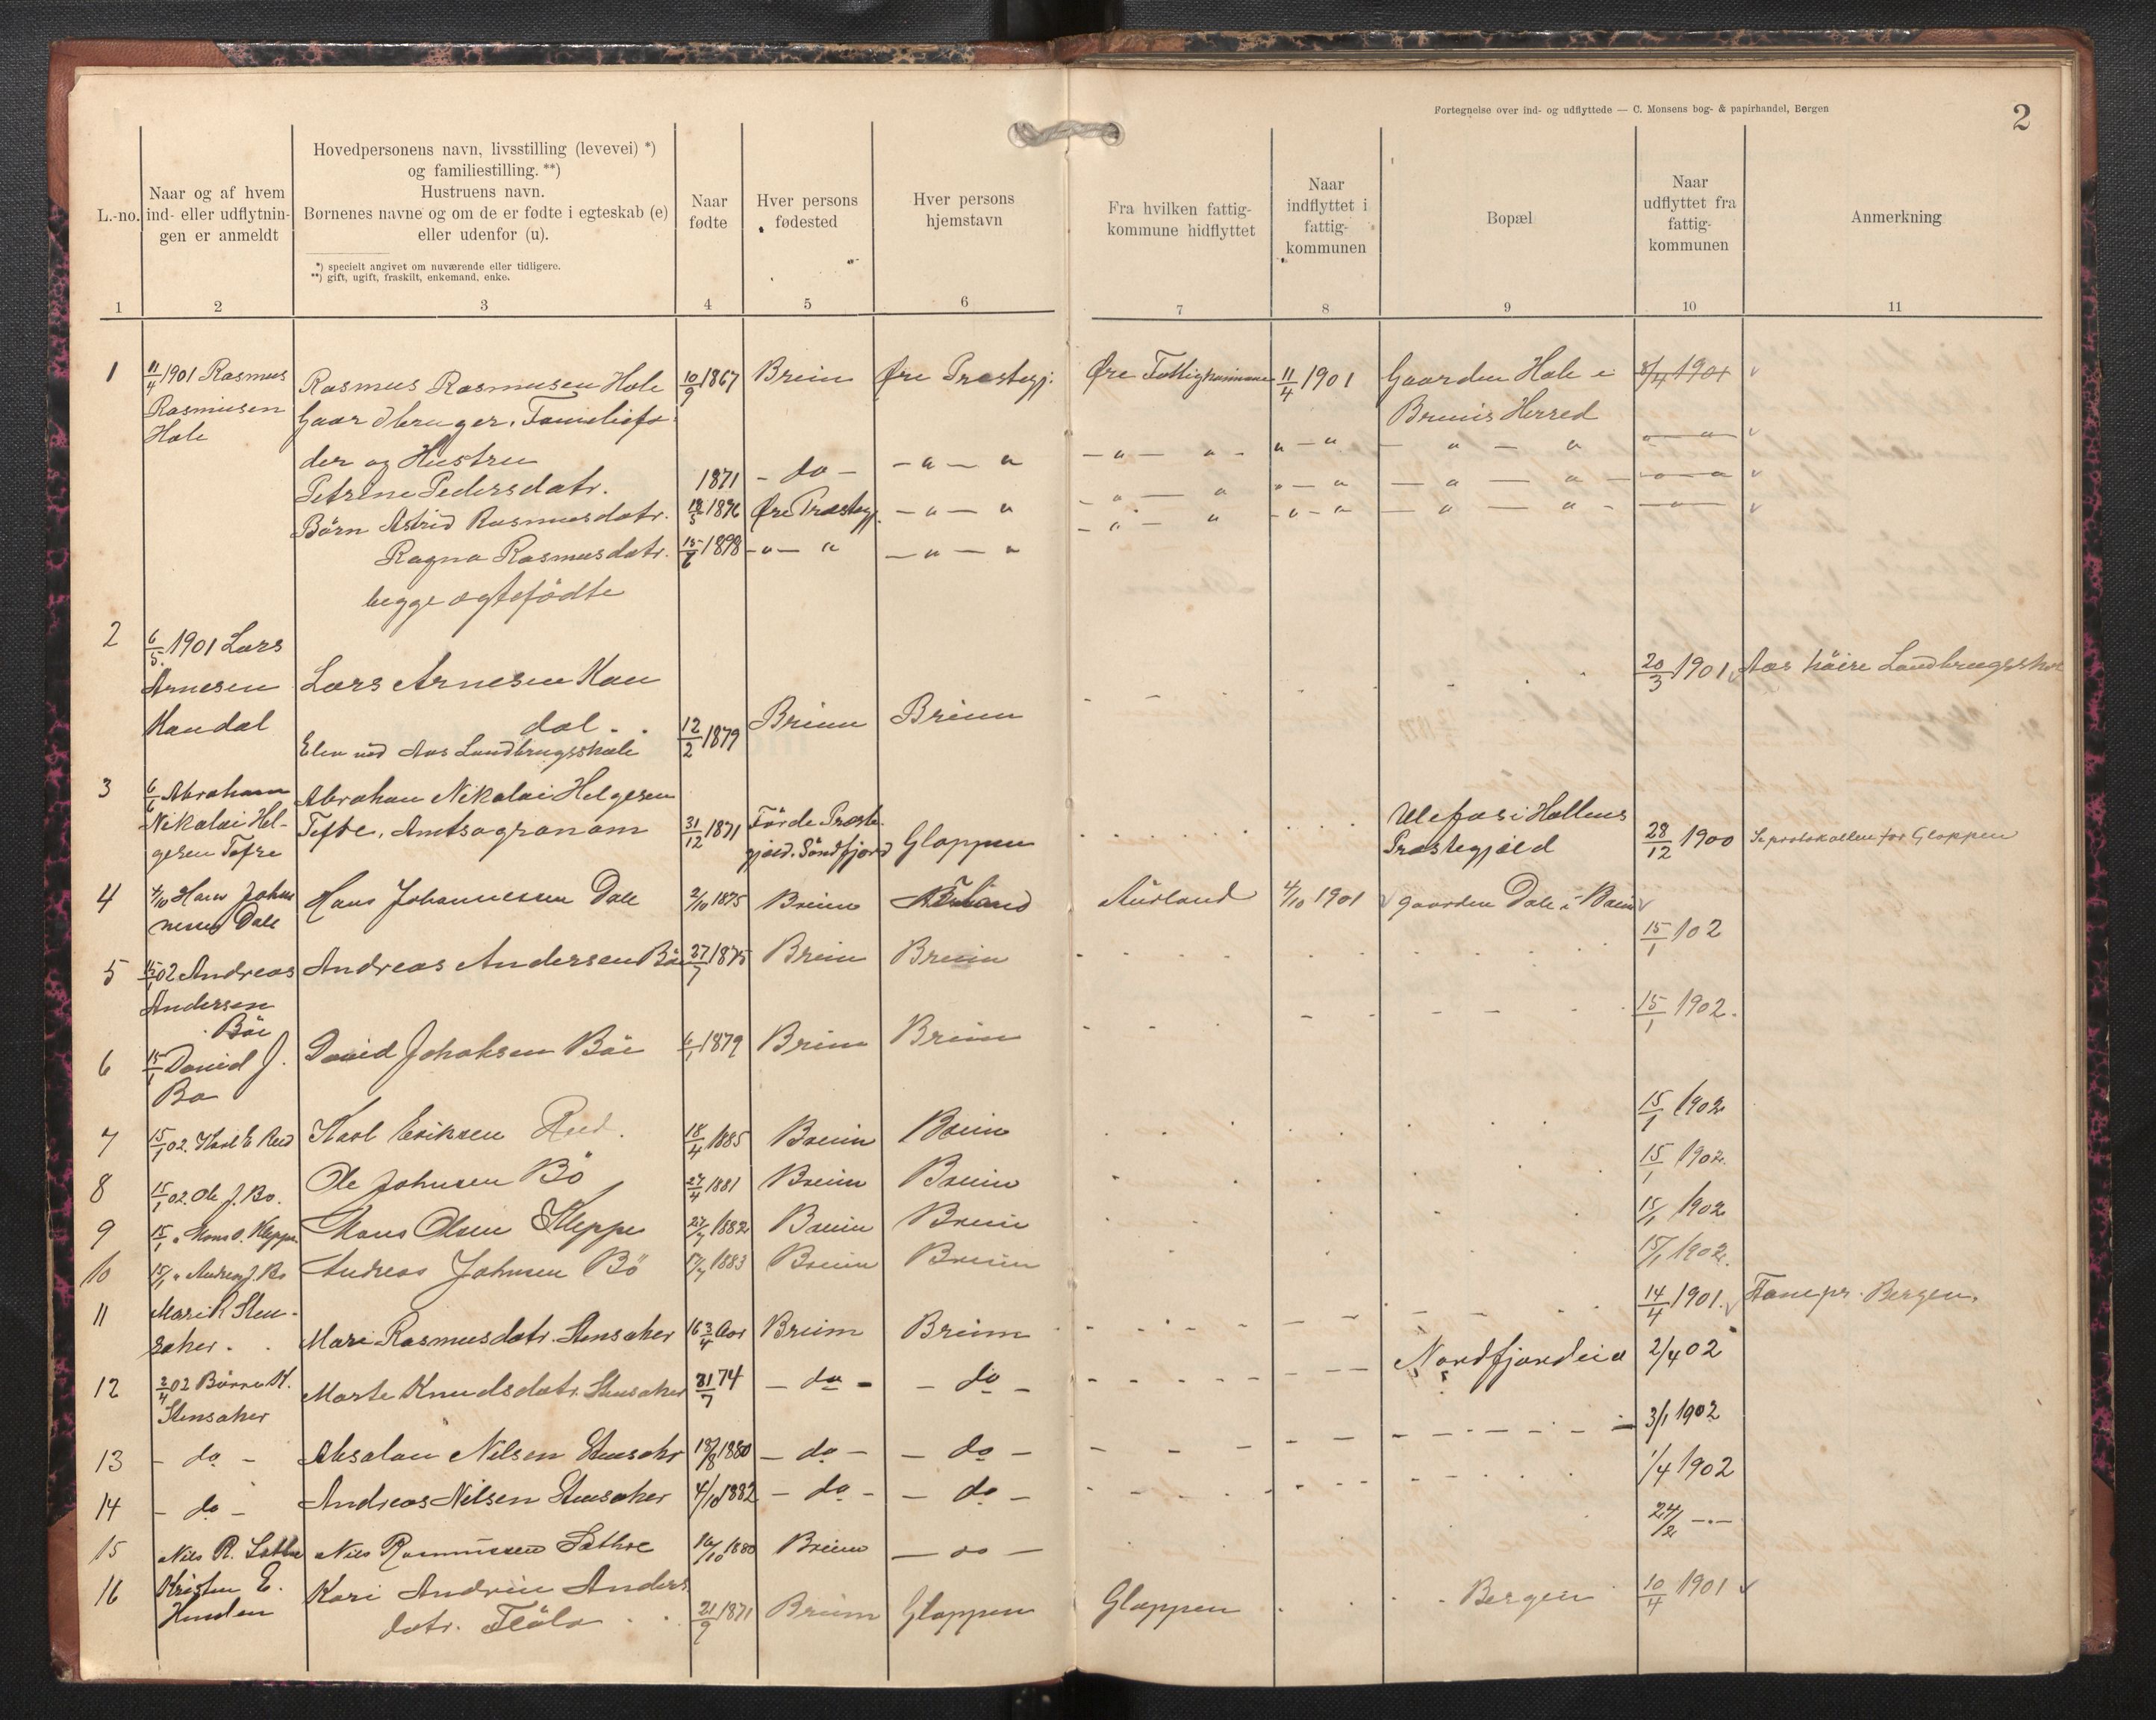 Fortegnelse over ind- og udflyttede — C. Monsens bog- & papirhandel, Bergen
2
L.-no.
Naar og af hvem
ind- eller udflytnin-
gen er anmeldt
Hovedpersonens navn, livsstilling (levevei) *)
og familiestilling. **)
Hustruens navn.
Børnenes navne og om de er fødte i egteskab (e)
eller udenfor (u).
*) specielt angivet om nuværende eller tidligere.
**) gift, ugift, fraskilt, enkemand, enke.
Naar
fødte
Hver persons
fødested
Hver persons
hjemstavn
Fra hvilken fattig-
kommune hidflyttet
Naar
indflyttet i
fattig-
kommunen
Bopæl
Naar
udflyttet fra
fattig-
kommunen
Anmerkning
1 2 3 4 5 6 7 8 9 10 11
1 11/4 1901 Rasmus Rasmus Rasmusen Hole 10/9 1867 Breim Øre Præstegj. Øre Fattigkommune 11/4 1901 Gaarden Hole i 8/4 1901 v
Rasmusen Gaardbruger. Familiefa- Breims Herred
Hole
der og Hustru
Petrine Pedersdatr. 1871 - do - - " - " - " - " - " - " - " - " - " - v
Børn Astrid Rasmusdatr. 18/5 1896 Øre Præstegj. - " - " - " - " " - " - " - " - " - " v
Ragna Rasmusdatr. 15/6 1898 - " - " - " - " - " - " - " - " - " - " - - " - v
begge ægtefødte
2 6/5 1901 Lars
Arnesen Lars Arnesen Kan 20/3 1901 v Aas høire Landbrugsskol
Kandal dal. 12/2 1879 Breim Breim
Elev ved Aas Landbrugsskole
3 6/6 Abraham Abraham Nikolai Helgesen
Nikolai Hel- Tefre, Amtsagronom 31/12 1871 Førde Præste- Gloppen Ulefos i Hollens 28/12 1900 Se protokollen for Gloppen
gesen Tefre gjæld. Søndfjord Præstegjæld
4 4/10 Hans Johan Hans Johannesen Dale 2/10 1875 Breim Aurland 4/10 1901 v gaarden Dale i Breim v
nesen Dale
5 15/1 02 Andreas Andreas Andersen Bøe 27/7 1875 Breim Breim 15/1 02
Andersen
Bøe
6 15/1 David J. David Johaksen Bøe 6/1 1879 Breim Breim 15/1 1902.
Bø
7 15/1 02. Karl E Reed Karl Eriksen Reed. 18/4 1885 Breim Breim 15/1 1902
8 15/1 02. Ole J. Bø. Ole Johnsen Bö 27/4 1881 Breim Breim 15/1 1902.
9 15/1 " Mons O. Kleppe Mons Olsen Kleppe 27/7 1882 Breim Breim 15/1 1902
10 15/1 " Andreas J. Bø Andreas Johnsen Bö 5/7 1883 Breim Breim 15/1 1902.
11 Mari R Sten-
saker. Mari Rasmusdatr. Stensaker 16 3/4 Aar Breim Breim 14/4 1901. v Fane pr. Bergen.
12 2/4 02 Børre K. Marte Knudsdatr. Stensaker 31/7 74 - do - - do - Nordfjordeid 2/4 02
Stensaker
13 - do - Absalon Nilsen Stensakr 18/8 1880 - do - - do - 3/1 1902
14 - do - Andreas Nilsen Stensaker 4/10 1882 - do - - do - 1/4 1902
15 Nils R. Sæthre Nils Rasmussen Sæthre 16/10 1880 Breim - do - 24/2 - " -
16 Kristen E. Kari Andrine Anders
Hunden datr. Fløla 21/9 1871 Breim Gloppen Gloppen Bergen 10/4 1901 v